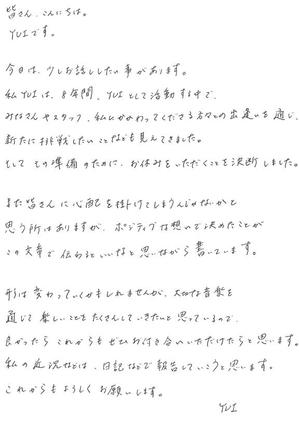 皆さん、こんにちは。
YUIです。
今日は、少しお話ししたい事があります。
私YUIは、8年間、YUIとして活動する中で、
みなさんやスタッフ、私にかかわってくださる方々との出逢いを通し、
新たに挑戦したいことなども見えてきました。
そして その準備のために、お休みをいただくことを決断しました。
また皆さんに心配を掛けてしまうんじゃないかと
思う所はありますが、ポジティブな想いで決めたことが
この文章で伝わるといいなと思いながら書いています。
形は変わっていくかもしれませんが、大切な音楽を
通じて楽しいことをたくさんしていきたいと思っているので、
良かったら これからも ぜひお付き合いいただけたらと思います。
私の近況などは、日記などで報告していこうと思います。
これからもよろしくお願いします。
YUI